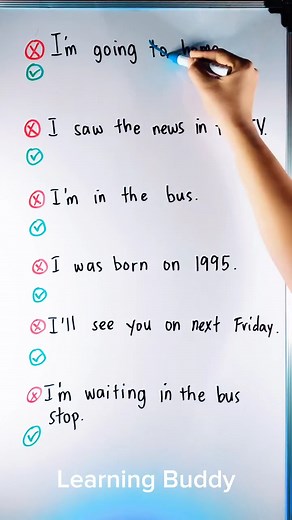 I'm going to home
I saw the news in TV.
I'm in the bus.
I was born on 1995.
I'll see you on next Friday.
I'm waiting in the bus
stop.
Learning Buddy